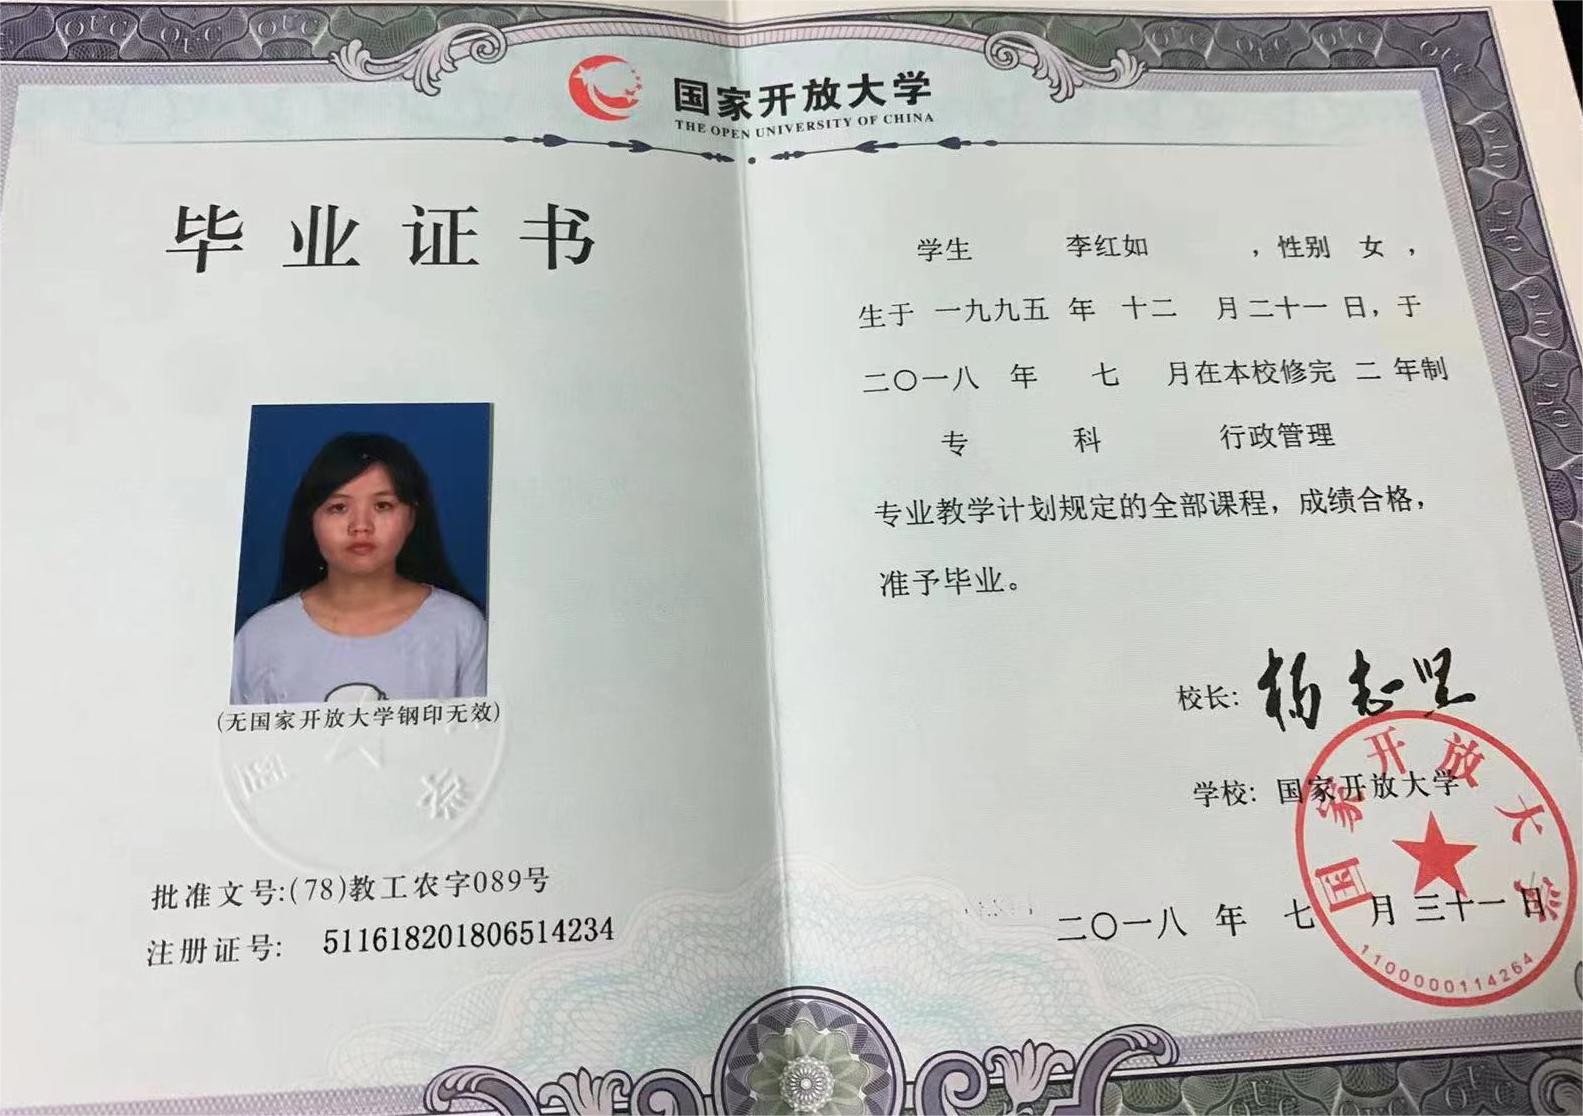 国家开放大学
THE OPEN UNIVERSITY OF CHINA
毕业证书
(无国家开放大学钢印无效)
批准文号:(78)教工农字089号
注册证号: 511618201806514234
学生 李红如 ,性别 女 ,
生于 一九九五 年 十二 月二十一 日,于
二〇一八 年 七 月在本校修完 二 年制
专 科 行政管理
专业教学计划规定的全部课程,成绩合格,
准予毕业。
校长: 杨志坚
学校: 国家开放大学
二〇一八 年 七 月 三十一 日
国家开放大学
1100000114264